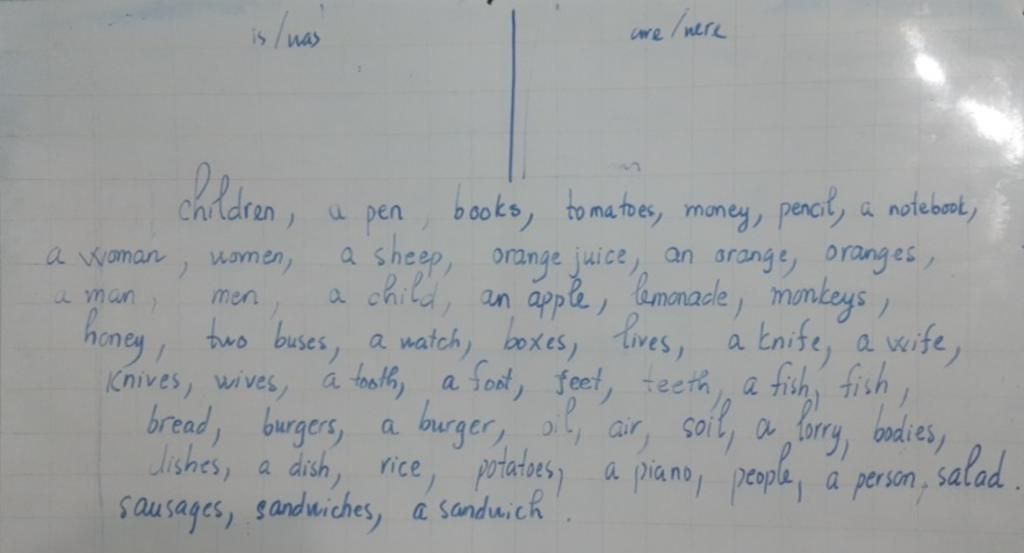 is/was are/were
children, a pen, books, tomatoes, money, pencil, a notebook,
a woman, women, a sheep, orange juice, an orange, oranges,
a man, men, a child, an apple, lemonade, monkeys,
honey, two buses, a watch, boxes, lives, a knife, a wife,
knives, wives, a tooth, a foot, feet, teeth, a fish, fish,
bread, burgers, a burger, oil, air, soil, a lorry, bodies,
dishes, a dish, rice, potatoes, a piano, people, a person, salad.
sausages, sandwiches, a sandwich.